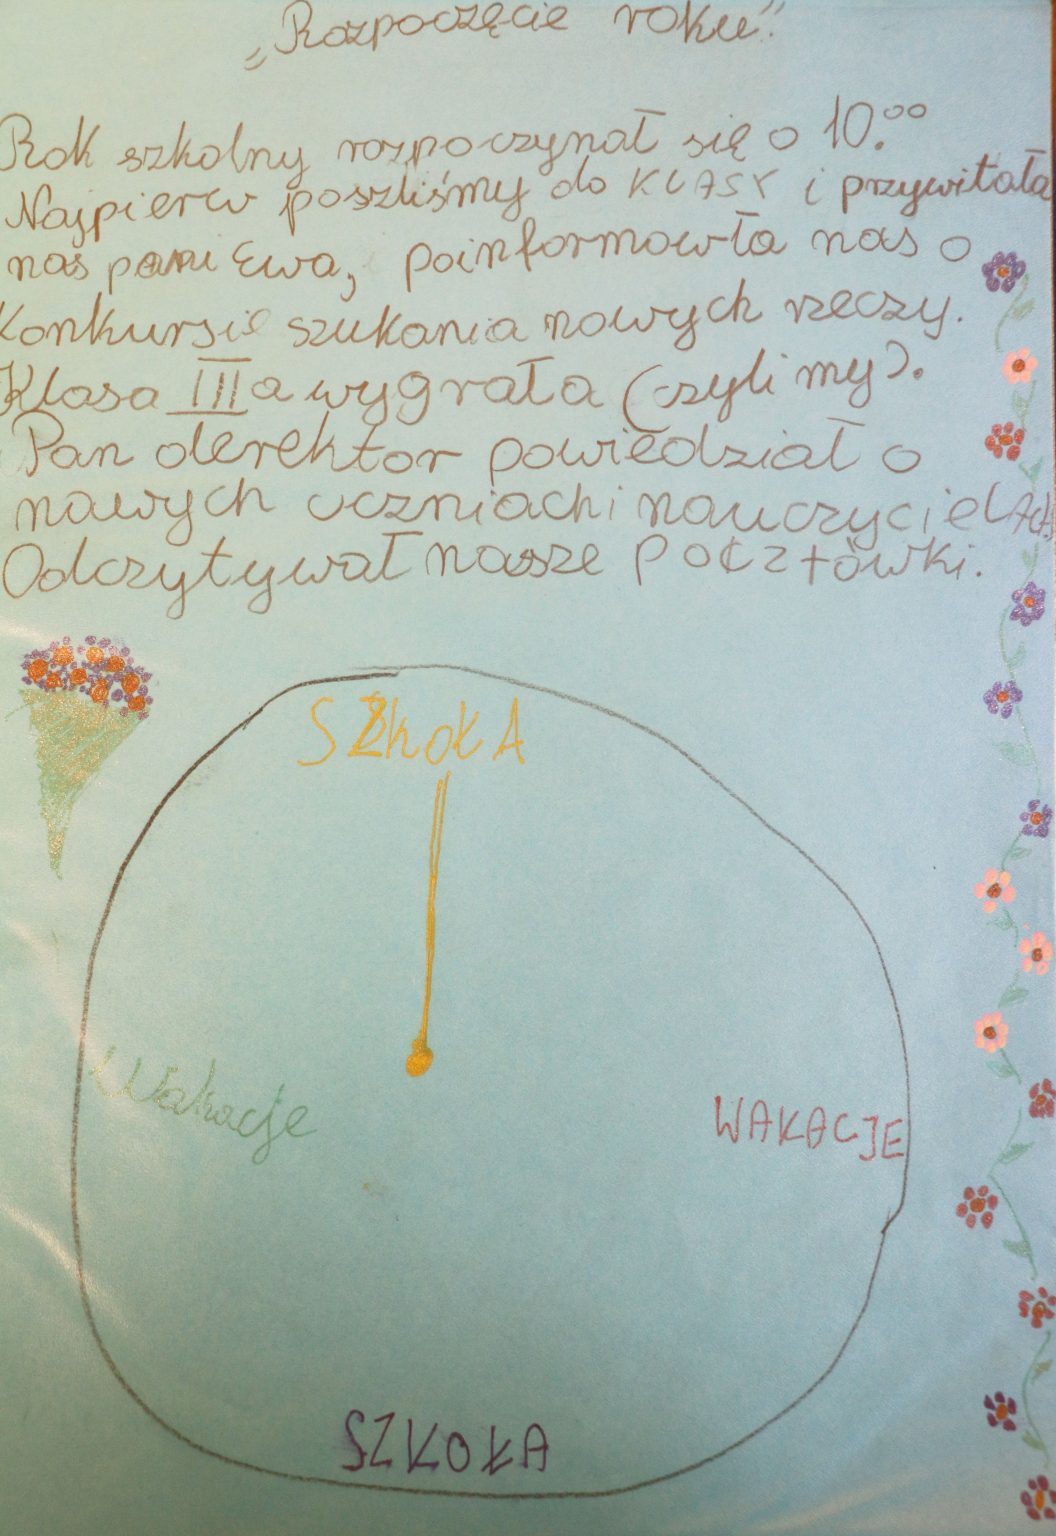 „Rozpoczęcie roku".
Rok szkolny rozpoczynał się o 10.⁰⁰
Najpierw poszliśmy do KLASY i przywitała
nas pani Ewa, poinformowła nas o
Konkursie szukania nowych rzeczy.
Klasa III a wygrała (czyli my).
Pan derektor powiedział o
nowych uczniach i nauczycielAch.
Odczytywał nasze pocztówki.
SZkoŁA
Wakacje
WAKACJE
SZKOŁA